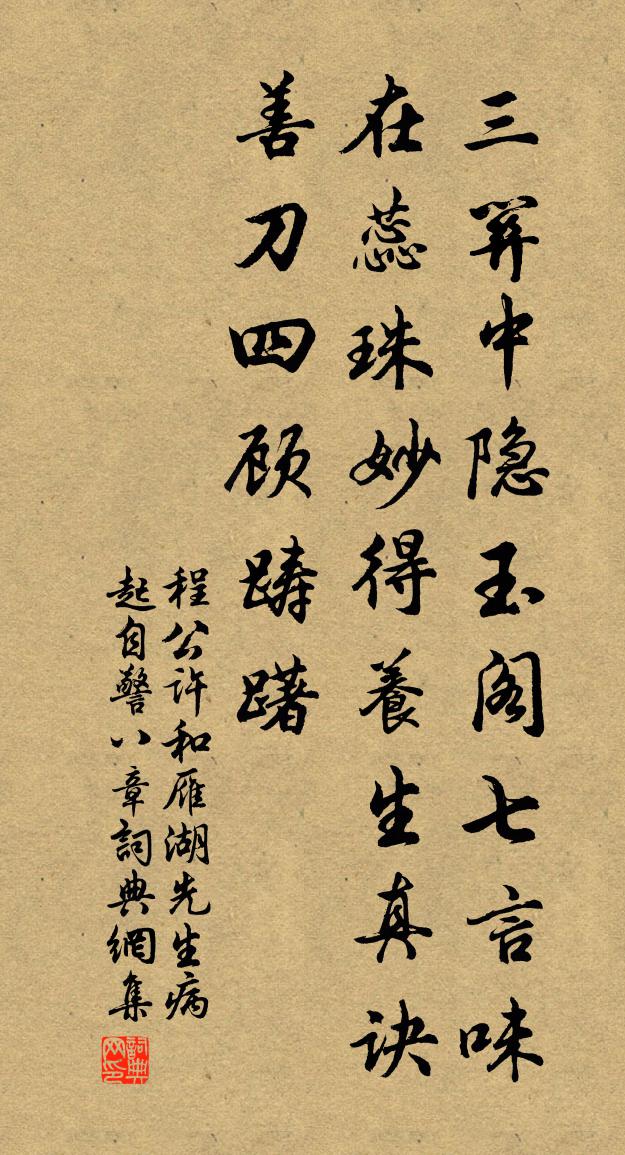 三中隐玉阁七言味
在蕊珠妙得養生真诀
善刀四顾踌躇
程公许和雁湖先生病
起自警八章詞典網集
詞典
网印